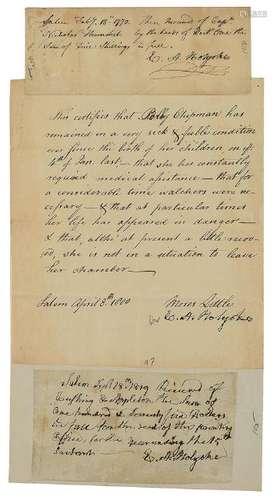 Salem Feby. 18th 1770. Then received of Capt.
Nicholas by the hands of
Sum of Shillings in full
E. A. Holyoke
This certifies that Polly Chapman has
remained in a very sick & feeble condition
ever since the birth of her children on ye
4th of Jan. last — that she has constantly
required medical assistance — that for
a considerable time watchers were ne-
cessary — & that at particular times
her life has appeared in danger —
& that, altho' at present a little reco-
, she is not in a situation to leave
her chamber —
Salem April 8th 1800
Moses Little
E. A. Holyoke
Salem Sept 28th 1819 Received of
Cushing & Appleton the Sum of
One hundred & Seventy five Dollars
in full for
Office for the the 15th
E. A. Holyoke